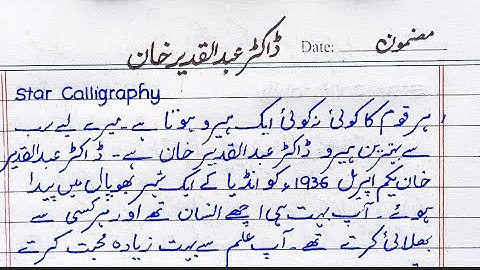 مضمون Date: ڈاکٹر عبدالقدیر خان
Star Calligraphy
ہر قوم کا کوئی نہ کوئی ایک ہیرو ہوتا ہے۔ میرے لیے سب
سے بہترین ہیرو ڈاکٹر عبدالقدیر خان ہے۔ ڈاکٹر عبدالقدیر
خان یکم اپریل 1936ء کو انڈیا کے ایک شہر بھوپال میں پیدا
ہوئے۔ آپ بہت ہی اچھے انسان تھے اور ہر کسی سے
بھلائی کرتے تھے۔ آپ علم سے بہت زیادہ محبت کرتے